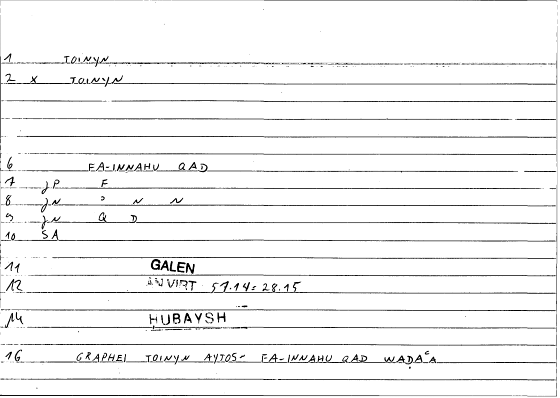 1 TOINYN
2 x TOINYN
6 FA-INNAHU QAD
7 JP F
8 JN ʾ N N
9 JN Q D
10 SA
11 GALEN
12 AN VIRT 51.14 = 28.15
14 HUBAYSH
16 GRAPHEI TOINYN AYTOS - FA-INNAHU QAD WAḌAʿA